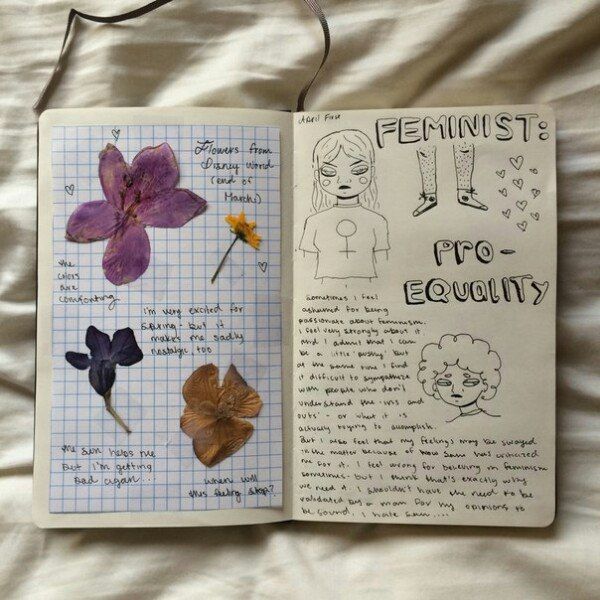 Flowers from
Disney World
(end of
March)
the
colors
are
comforting
I'm very excited for
Spring. but it
makes me sadly
nostalgic too
the sun helps me
but I'm getting
sad again...
when will
this feeling stop?
April First
FEMINIST:
PRO-
EQUALITY
Sometimes I feel
ashamed for being
passionate about feminism.
I feel very strongly about it
and I admit that I can
be a little 'pushy' but
at the same time I find
it difficult to sympathize
with people who don't
understand the 'ins and
outs' - or what it is
actually trying to accomplish.
But I also feel that my feelings may be swayed
in the matter because of how Sam has criticized
me for it. I feel wrong for believing in feminism
sometimes. but I think that's exactly why
we need it. I shouldn't have the need to be
validated by a man for my opinions to
be sound. I hate Sam...